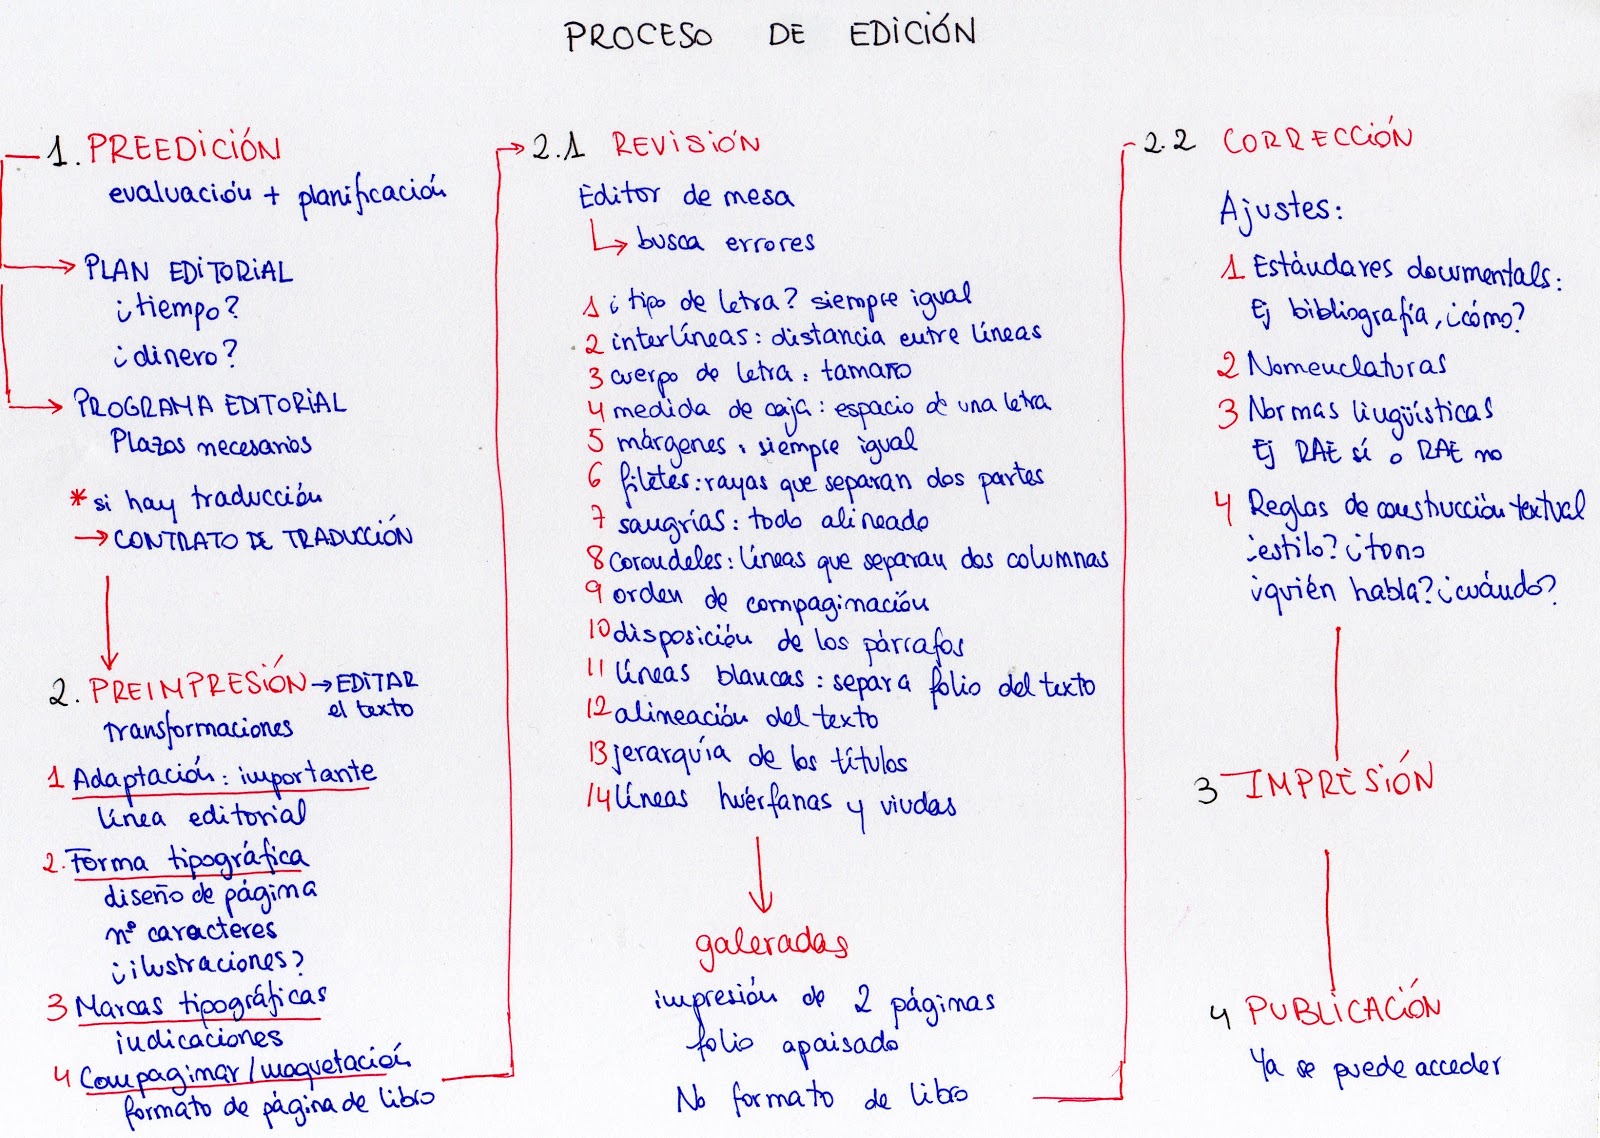 PROCESO DE EDICIÓN
1. PREEDICIÓN
evaluación + planificación
→ PLAN EDITORIAL
¿tiempo?
¿dinero?
→ PROGRAMA EDITORIAL
Plazos necesarios
* si hay traducción
→ CONTRATO DE TRADUCCIÓN
2. PREIMPRESIÓN → EDITAR
el texto
transformaciones
1 Adaptación: importante
línea editorial
2. Forma tipográfica
diseño de página
nº caracteres
¿ilustraciones?
3 Marcas tipográficas
indicaciones
4 Compaginar/maquetación
formato de página de libro
→ 2.1 REVISIÓN
Editor de mesa
↳ busca errores
1 ¿tipo de letra? siempre igual
2 interlíneas: distancia entre líneas
3 cuerpo de letra: tamaño
4 medida de caja: espacio de una letra
5 márgenes: siempre igual
6 filetes: rayas que separan dos partes
7 sangrías: todo alineado
8 corondeles: líneas que separan dos columnas
9 orden de compaginación
10 disposición de los párrafos
11 líneas blancas: separa folio del texto
12 alineación del texto
13 jerarquía de los títulos
14 líneas huérfanas y viudas
galeradas
impresión de 2 páginas
folio apaisado
No formato de libro
2.2 CORRECCIÓN
Ajustes:
1 Estándares documentals:
Ej bibliografía, ¿cómo?
2 Nomenclaturas
3 Normas lingüísticas
Ej RAE sí o RAE no
4 Reglas de construcción textual
¿estilo? ¿tono
¿quién habla? ¿cuándo?
3 IMPRESIÓN
4 PUBLICACIÓN
Ya se puede acceder